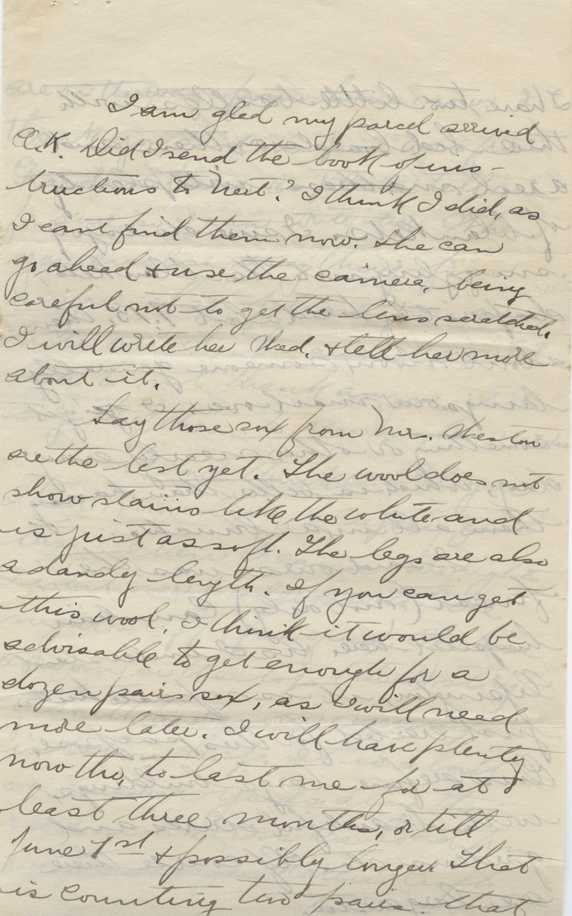 I am glad my parcel arrived
O.K. Did I send the book of ins-
tructions to "Neit"? I think I did, as
I cant find them now. She can
go ahead & use the camera, being
careful not to get the lens scratched.
I will write her Wed. & tell her more
about it.
Say those sox from Mrs. Weston
are the best yet. The wool does not
show stains like the white and
is just as soft. The legs are also
a dandy length. If you can get
this wool, I think it would be
advisable to get enough for a
dozen pairs sox, as I will need
more later. I will have plenty
now tho, to last me for at
least three months, or till
June 1st & possibly longer. That
is counting two pairs that